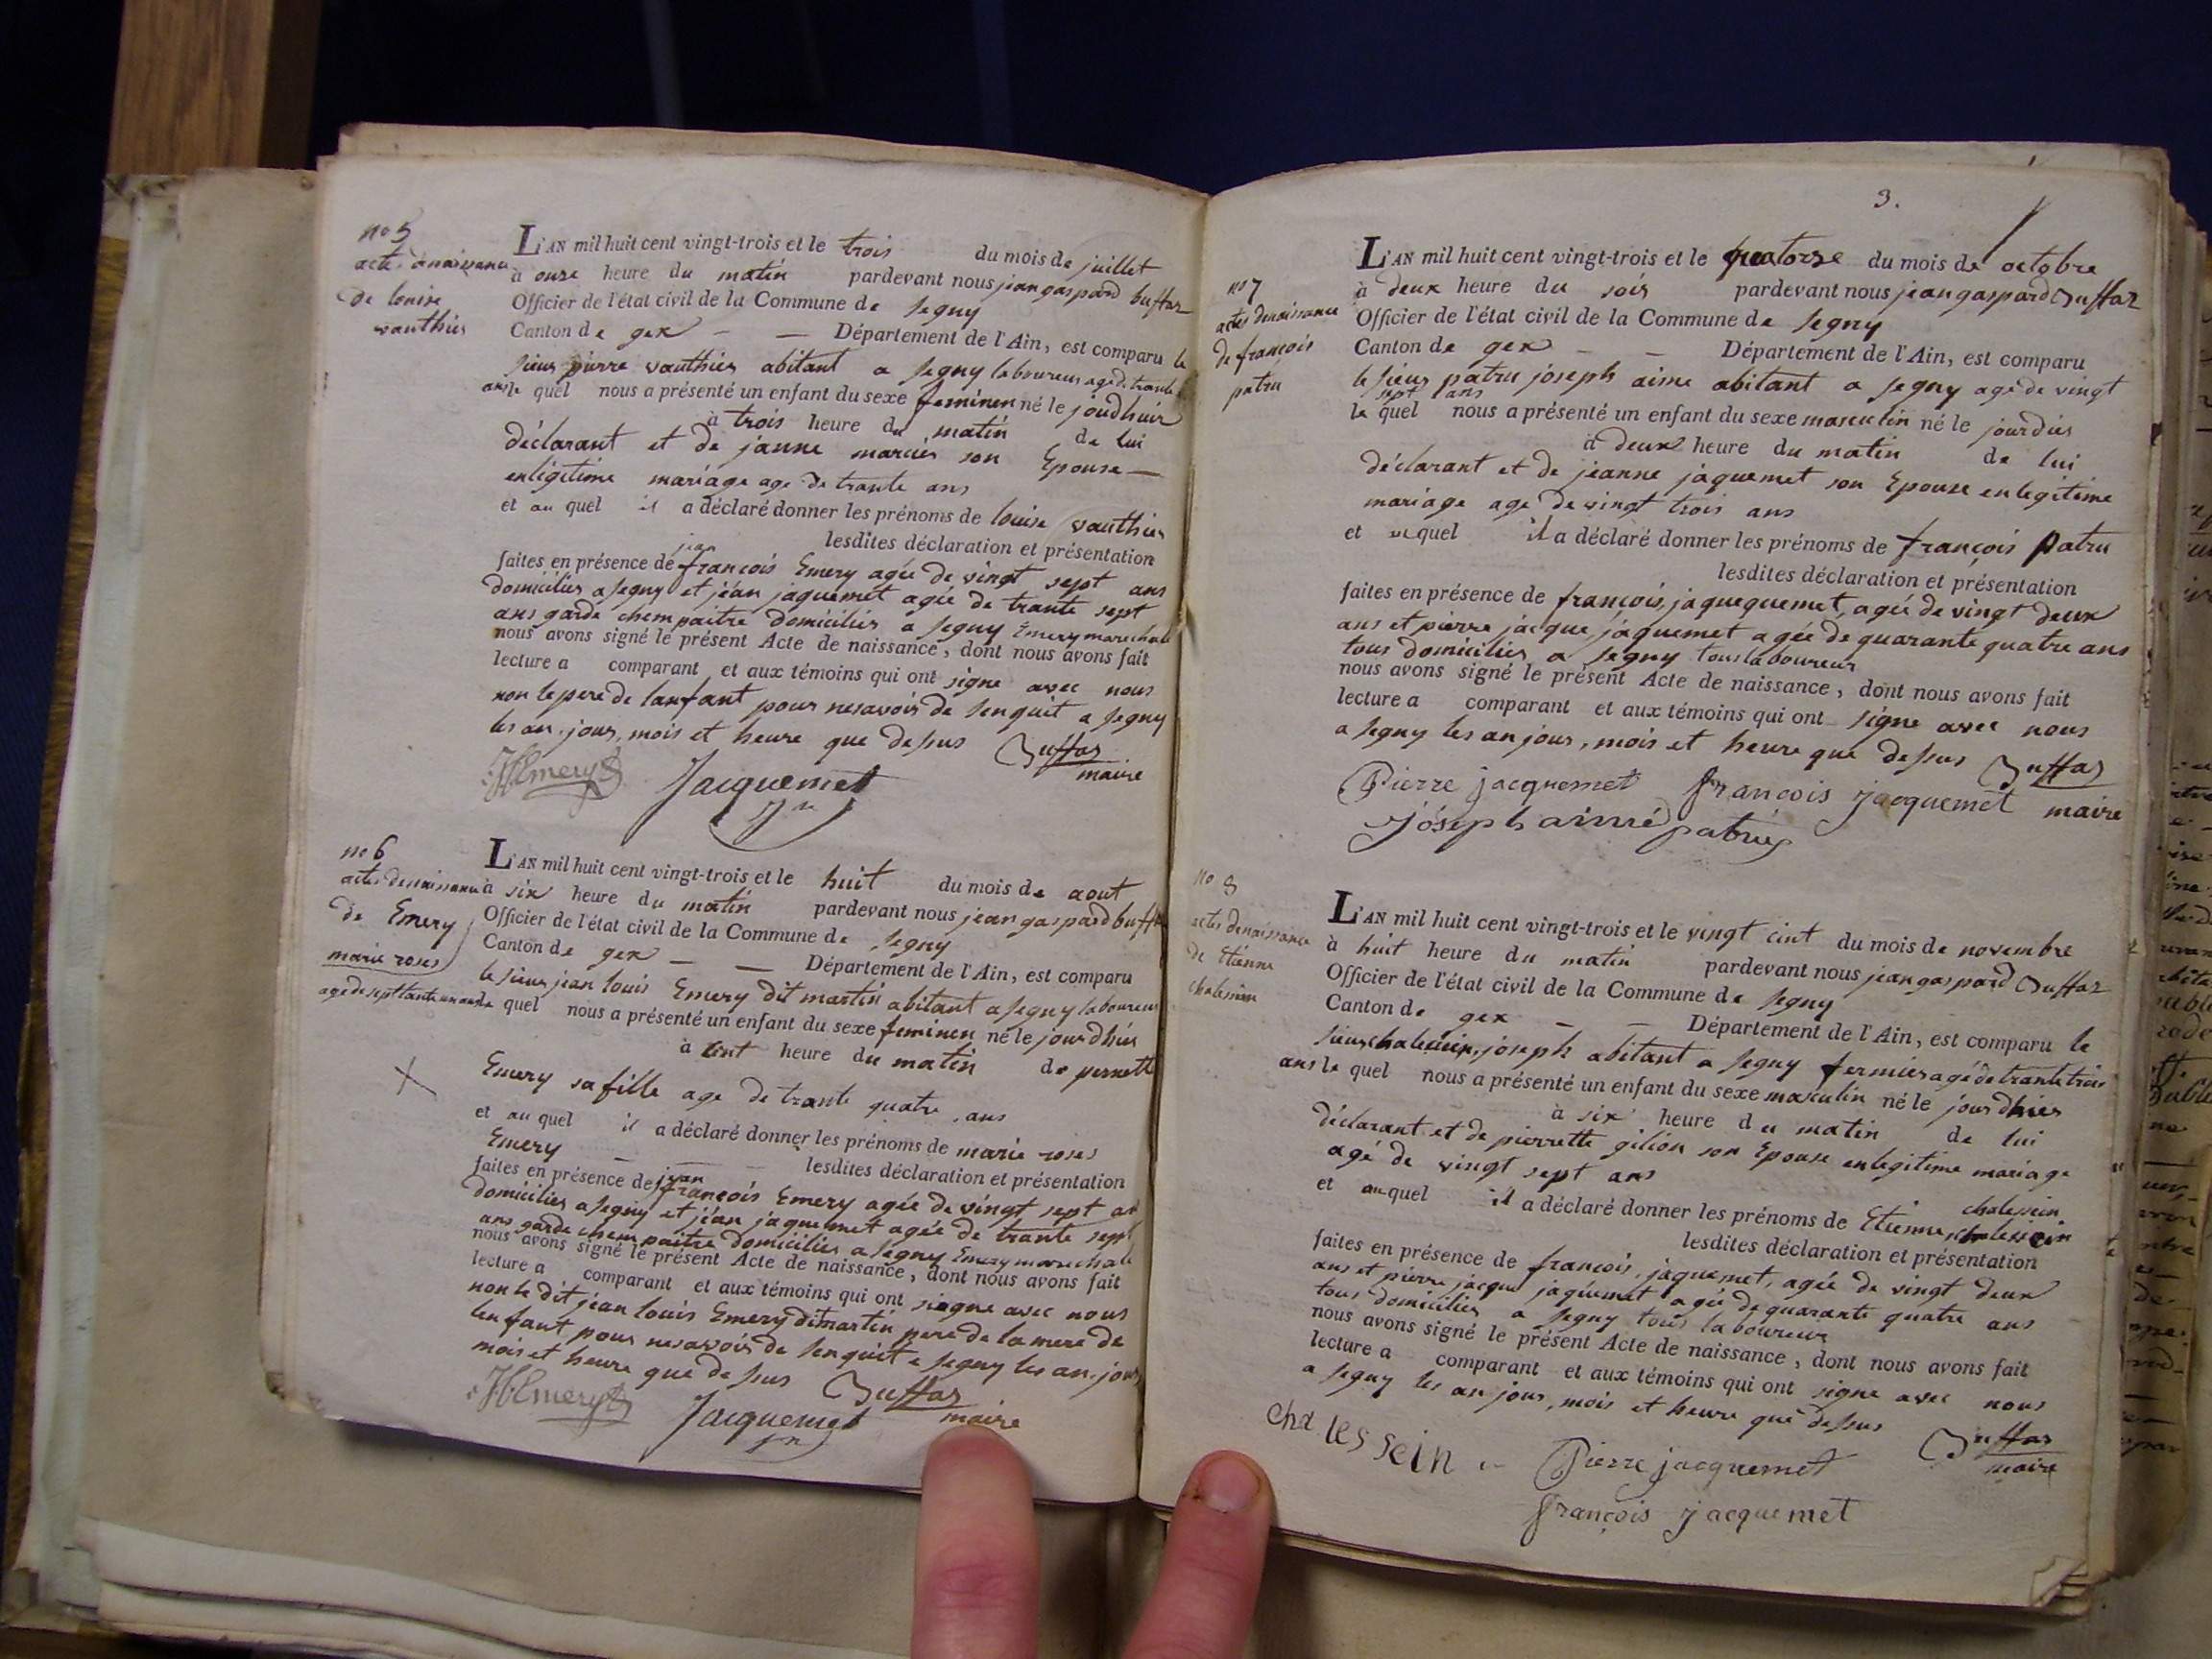 no 5
acte de naissance
de louise
vauthier
L'AN mil huit cent vingt-trois et le trois du mois de juillet
à onze heure du matin pardevant nous jean gaspard buffaz
Officier de l'état civil de la Commune de segny
Canton de gex — — Département de l'Ain, est comparu le
sieur pierre vauthier abitant a segny laboureur age de trante
ans le quel nous a présenté un enfant du sexe feminen né le joudhuir
à trois heure du matin de lui
déclarant et de janne son Epouse —
enlégitime mariage age de trante ans
et au quel il a déclaré donner les prénoms de louise vauthier
lesdites déclaration et présentation
faites en présence de jean françois Emery agée de vingt sept ans
domicilies a segny et jéan jaquemet agée de trante sept
ans garde chempaitre domicilier a segny Emery marechale
nous avons signé le présent Acte de naissance, dont nous avons fait
lecture a comparant et aux témoins qui ont signe avec nous
non le pere de lanfant pour nesavoir de senquit a segny
les an, jour, mois et heure que desus Buffaz
maire
Jacquemet
no 6
actes denaissance
de Emery
marie roses
L'AN mil huit cent vingt-trois et le huit du mois de aout
à six heure du matin pardevant nous jean gaspard buffaz
Officier de l'état civil de la Commune de segny
Canton de gex — — Département de l'Ain, est comparu
le sieur jean louis Emery dit martin abitant a segny laboureur
age de sept tante un ans le quel nous a présenté un enfant du sexe feminen né le jour dhier
à cint heure du matin de pernette
Emery sa fille age de trante quatre ans
et au quel il a déclaré donner les prénoms de marie roses
Emery — — — lesdites déclaration et présentation
faites en présence de jean françois Emery agée de vingt sept an
domicilies a segny et jéan jaquemet agée de trante sept
ans garde chem paitre domicilier a segny Emery marechale
nous avons signé le présent Acte de naissance, dont nous avons fait
lecture a comparant et aux témoins qui ont siegne avec nous
non le dit jean louis Emery dit martin pere de la mere de
lenfant pour nesavoir de senquit a segny les an, jour
mois et heure que desus Buffaz
maire
Jacquemet
3.
no 7
actes denaissance
de francois
patru
L'AN mil huit cent vingt-trois et le quatorze du mois de octobre
à deux heure du soir pardevant nous jean gaspard Buffaz
Officier de l'état civil de la Commune de segny
Canton de gex — — Département de l'Ain, est comparu
le sieur patru joseph aime abitant a segny age de vingt
sept ans
le quel nous a présenté un enfant du sexe masculin né le jourduis
à deux heure du matin de lui
déclarant et de jeanne jaquemet son Epouse enlegitime
mariage age de vingt trois ans
et auquel il a déclaré donner les prénoms de françois patru
lesdites déclaration et présentation
faites en présence de françois, jaquequemet, agée de vingt deux
ans et pierre jacque, jaquemet agée de quarante quatre ans
tous domicilies a segny tous laboureur
nous avons signé le présent Acte de naissance, dont nous avons fait
lecture a comparant et aux témoins qui ont signe avec nous
a segny les an jour, mois et heure que desus Buffaz
maire
Pierre jacquemet françois jacquemet
joseph aimé patru
no 8
actes denaissance
de Etienne
chalessin
L'AN mil huit cent vingt-trois et le vingt cint du mois de novembre
à huit heure du matin pardevant nous jean gaspard Buffaz
Officier de l'état civil de la Commune de segny
Canton de gex — — Département de l'Ain, est comparu le
sieur joseph abitant a segny fermier agé de trante trois
ans le quel nous a présenté un enfant du sexe masculin né le jour dhier
à six heure du matin de lui
déclarant et de pierrette gilion son Epouse enlegitime mariage
agé de vingt sept ans
et auquel il a déclaré donner les prénoms de Etienne, chalessein
chalessein
lesdites déclaration et présentation
faites en présence de francois, jaquemet, agée de vingt deux
ans et pierre jacque jaquemet agée de quarante quatre ans
tous domicilies a segny tous laboureur
nous avons signé le présent Acte de naissance, dont nous avons fait
lecture a comparant et aux témoins qui ont signe avec nous
a segny les an jour, mois et heure que desus Buffaz
maire
chalessein Pierre jacquemet
françois jacquemet